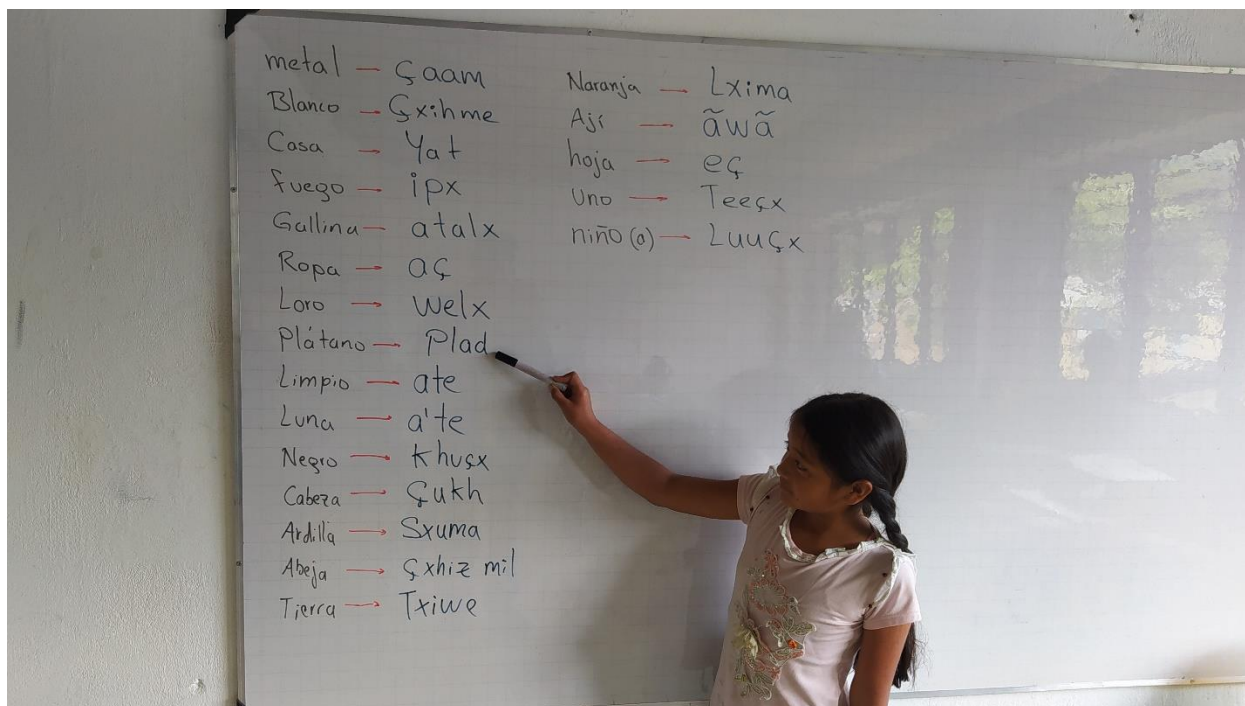 metal → çaam
Blanco → Çxihme
Casa → Yat
fuego → ipx
Gallina → atalx
Ropa → aç
Loro → welx
Plátano → Plad
Limpio → ate
Luna → a'te
Negro → Khuçx
Cabeza → Çukh
Ardilla → Sxuma
Abeja → Çxhiz mil
Tierra → Txiwe
Naranja → Lxima
Ají → ãwã
hoja → eç
Uno → Teeçx
niño (a) → Luuçx